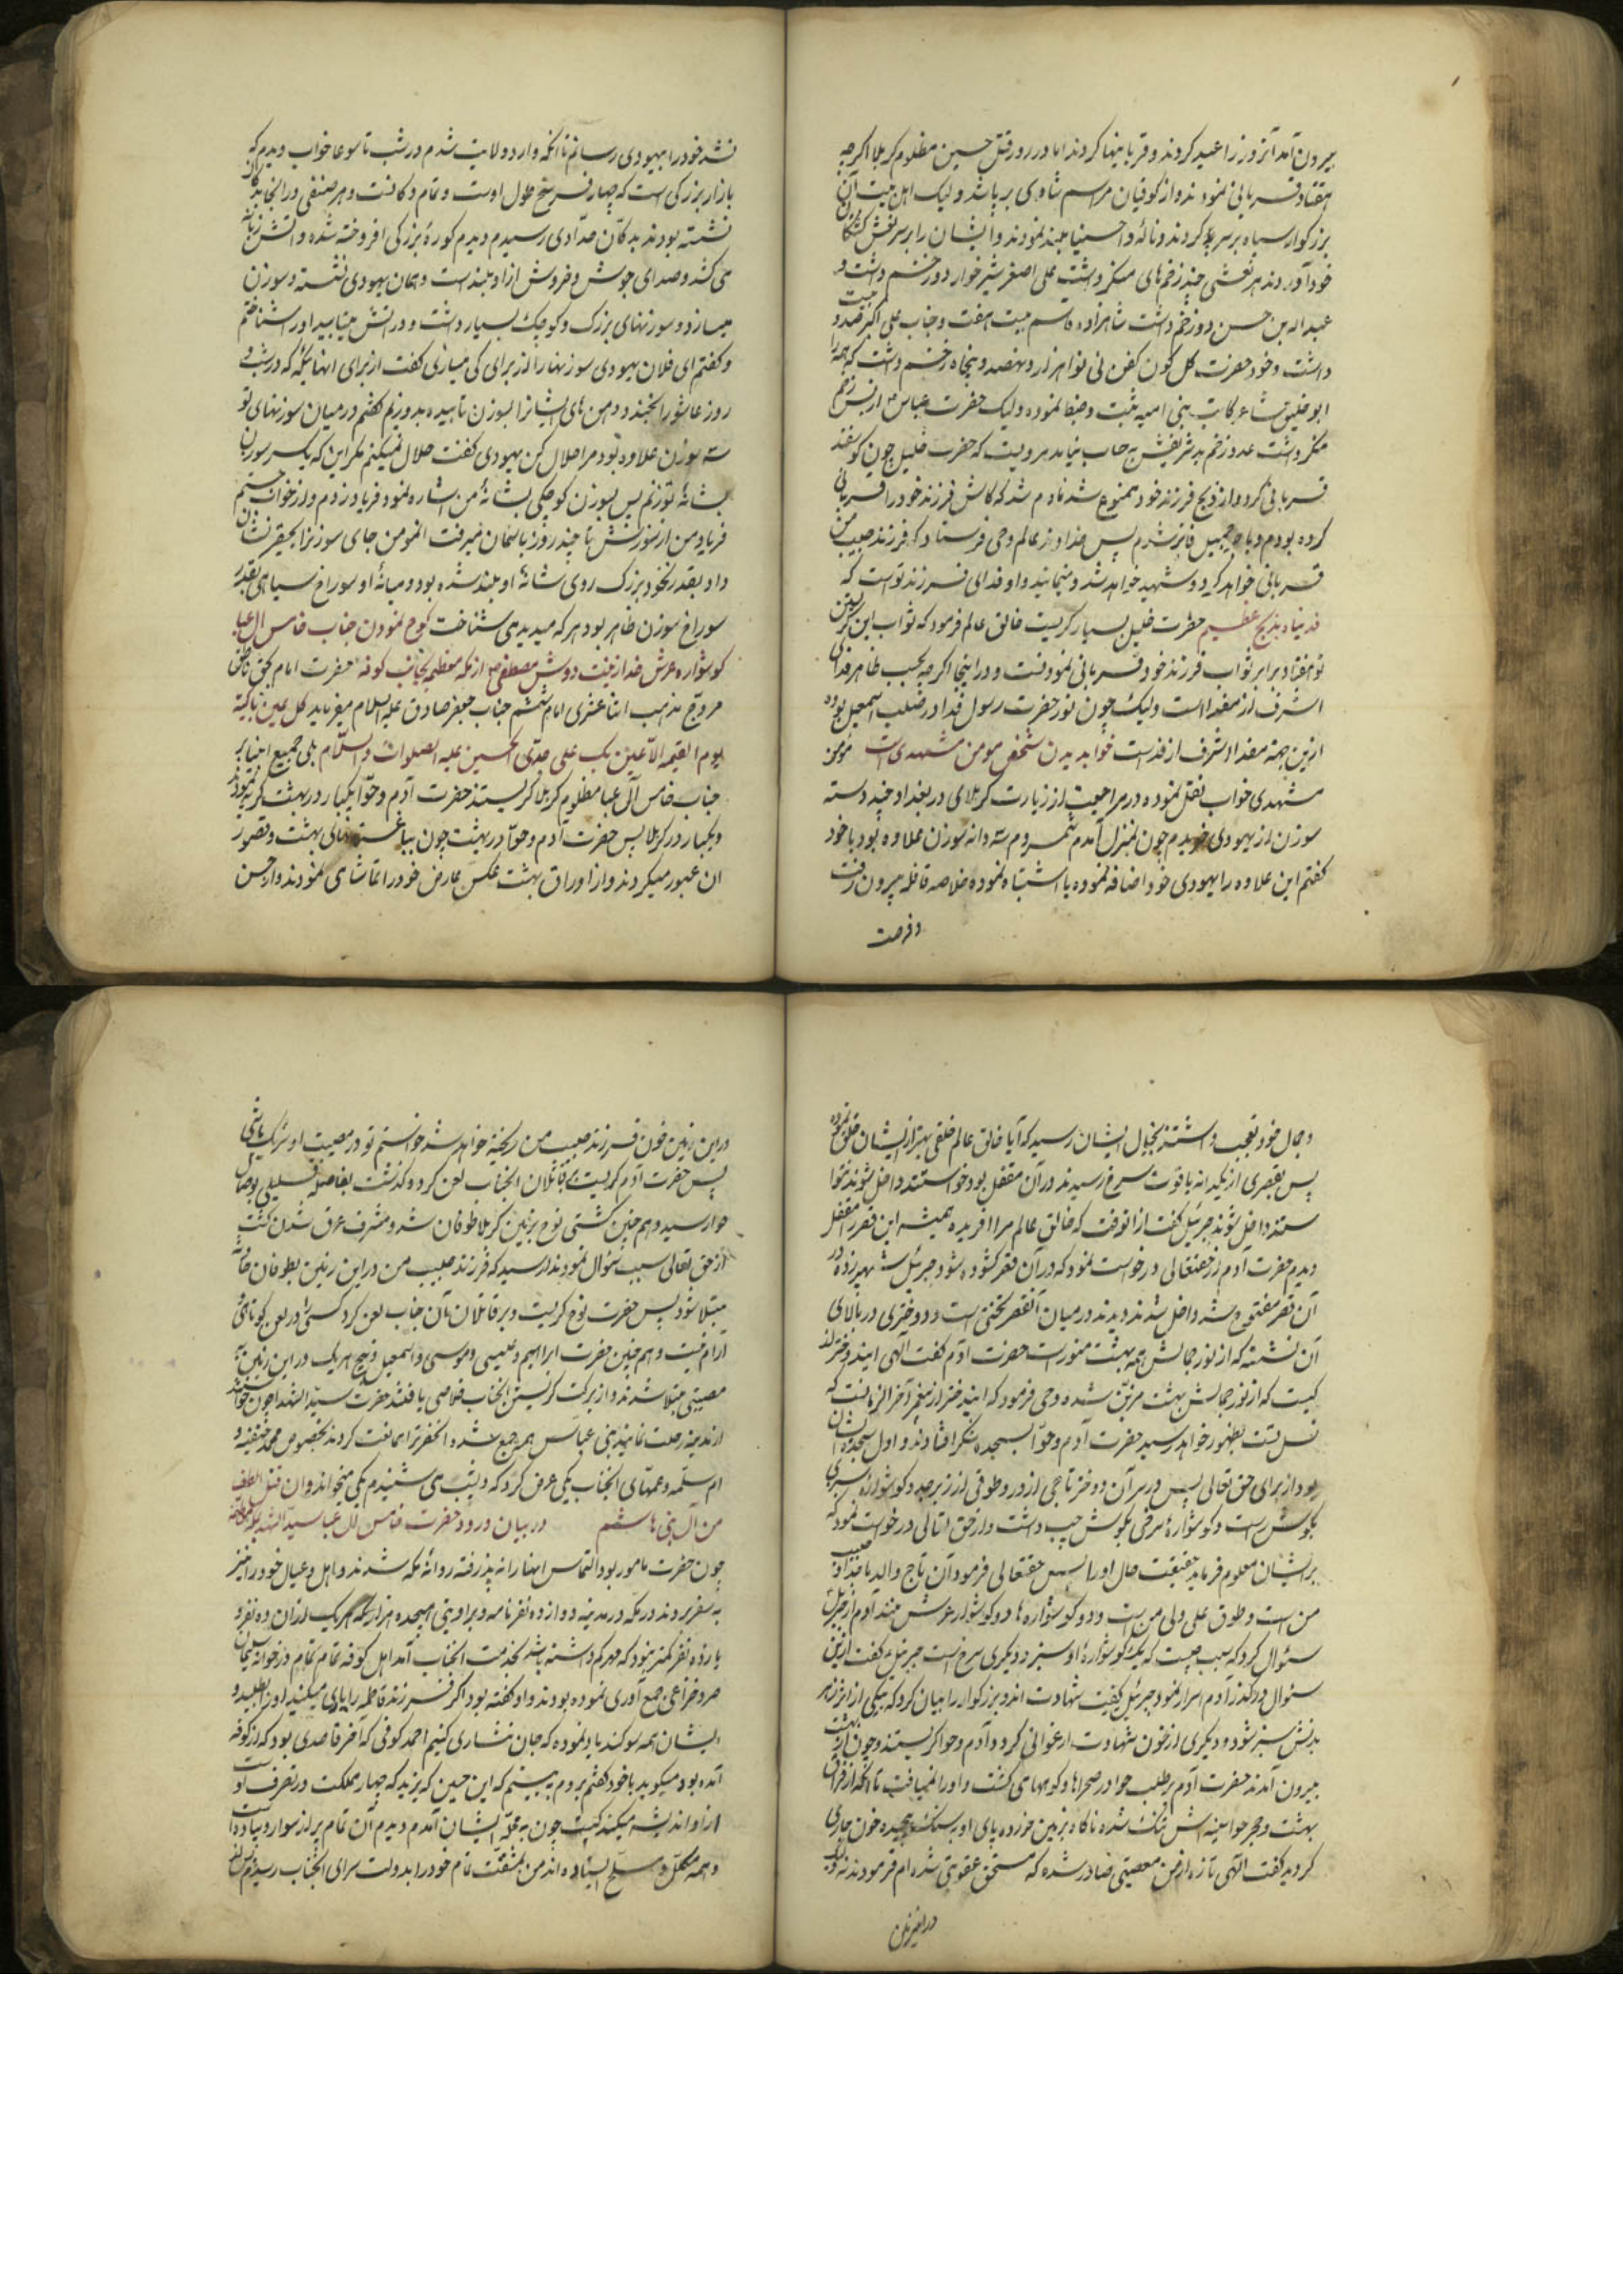 بیرون آمد آنروز را عید کردند و قربانیها کردند اما در روز قتل حسین مظلوم کربلا اگرچه
هفتاد قربانی نمودند و از کوفیان مراسم شادی برپا شد ولیک اهل بیت آن
بزرکوار سیاه بر سر کردند و ناله وا حسینا بلند نمودند و ایشان را بر سر نعش کشتکان
خود آوردند هر نعشی چند زخمهای منکر داشت علی اصغر شیر خوار دو زخم داشت و
عبد اله بن حسن دو زخم داشت شاهزاده قاسم بیست هفت و جناب علی اکبر صد و بیست
داشت و خود حضرت کل کون کفن نی نوا هزار و نهصد و پنجاه زخم داشت که همه را
ابو خلیق شاعر کاتب بنی امیه ثبت و ضبط نموده ولیک حضرت عباس از بس زخم
منکر داشت عدد زخم بدن شریفش به حساب نیامد مرویست که حضرت خلیل چون کوسفند
قربانی کرد و از ذبح فرزند خود ممنوع شد نادم شد که کاش فرزند خود را قربانی
کرده بودم و باجر جمیل فایز شدم پس خداوند عالم وحی فرستاد که فرزند حبیب من
قربانی خواهد کردید و شهید خواهد شد و او فدای فرزند تو است که
فدیناه بذبح عظیم حضرت خلیل بسیار کریست خالق عالم فرمود که ثواب این کریستن
تو هفتاد برابر ثواب فرزند خود قربانی نمودنست و در اینجا اکرچه بحسب ظاهر فدا
اشرف از مفدا است ولیک چون نور حضرت رسول خدا در صلب اسمعیل بوده
ازین جهة مفدا اشرف از فداست خواب دیدن شخص مومن مشهدی است مومن
مشهدی خواب نقل نموده در مراجعت از زیارت کربلای در بغداد چند دسته
سوزن از یهودی خریدم چون بمنزل آمدم شمردم سه دانه سوزن علاوه بود با خود
کفتم این علاوه را یهودی خود اضافه نموده یا اشتباه نموده خلاصه قافله بیرون رفت
و فرصت
نشد خود را بیهودی رسانم تا آنکه وارد ولایت شدم در شب تاسوعا خواب دیدم که
بازار بزرکی است که چهار فرسخ طول اوست و تمام دکانست و هر صنفی در آنجا
نشسته بودند بدکان حدادی رسیدم دیدم کوره بزرکی افروخته شده و آتش زبانه
می کشد و صدای جوش و خروش از او بلند است و همان یهودی نشسته و سوزن
میسازد و سوزنهای بزرک و کوچک بسیار داشت و در آتش میتابید او را شناختم
و کفتم ای فلان یهودی سوزنها را از برای کی میسازی کفت از برای آنهائیکه که در شب و
روز عاشورا بخندند و دهن های ایشانرا بسوزن تابیده بدوزیم کفتم در میان سوزنهای تو
سه سوزن علاوه بود مرا حلال کن یهودی کفت حلال نمیکنم مکر این که یک سر سوزن
بشانه تو زنم پس بسوزن کوچکی بشانه من اشاره نمود فریاد زدم و از خواب جستم
فریاد من از سوزش تا چند روز باسمان میرفت آنمومن جای سوزنرا بحقیر نشان
داد بقدر نخود بزرک روی شانه او بلند شده بود و میانه او سوراخ سیاهی بقدر
سوراخ سوزن ظاهر بود هر که میدیدمی شناخت کوچ نمودن جناب خامس آل عبا
کوشواره عرش خدا زینت دوش مصطفی از مکه معظمه بجانب کوفه حضرت امام بحق ناطق
مروج مذهب اثنا عشری امام ششم جناب جعفر صادق علیه السلام میفرماید کل عین باکیة
یوم القیمه الا عین بکت علی جدی الحسین علیه الصلوات و السلام بلی جمیع انبیا بر
جناب خامس آل عبا مظلوم کربلا کریستند حضرت آدم و حوا یکبار در بهشت کریه نمودند
و یکبار در کربلا پس حضرت آدم و حوا در بهشت چون بباغستانهای بهشت و قصور
آن عبور میکردند و از اوراق بهشت عکس عارض خود را تماشای نمودند و از حسن
و جمال خود تعجب داشتند بخیال ایشان رسید که آیا خالق عالم خلقی بهتر از ایشان خلق نموده
پس بقصری از یکدانه یاقوت سرخ رسیدند در آن مقفل بود خواستند داخل شوند نتوا
نستند داخل شوند جبرئیل کفت از آنوقت که خالق عالم مرا افریده همیشه این قصر را مقفل
دیدم حضرت آدم از حقتعالی درخواست نمود که در آن قصر کشوده شود جبرئیل شهپر زد
آن قصر مفتوح شد داخل شدند دیدند در میان آنقصر تختی است و دختری در بالای
آن نشسته که از نور جمالش همه بهشت منور است حضرت آدم کفت الهی ایندختر از
کیست که از نور جمالش بهشت مزین شده وحی فرمود که ایندختر از پیغمبر آخر الزمانست که
نسل تست بظهور خواهد رسید حضرت آدم و حوا بسجده شکر افتادند و اول سجده ایشان
بود از برای حق تعالی پس در سر آن دختر تاجی از در و طوقی از زبرجد و کوشواره سبزی
بکوش راست و کوشواره سرخی بکوش چپ داشت و از حق تعالی درخواست نمود که
بر ایشان معلوم فرماید حقیقت حال او را پس حقتعالی فرمود آن تاج والد ماجد او حبیب
من است و طوق علی ولی من است و دو کوشواره ها دو کوشوار عرش منند آدم از جبرئیل
سئوال کرد که سبب چیست که یک کوشواره او سبز و دیکری سرخ است جبرئیل کفت ازین
سئوال درکذر آدم اصرار نمود جبرئیل کیفیت شهادت اندو بزرکوار را بیان کرد که یکی از اثر زهر
بدنش سبز شود و دیکری از خون شهادت ارغوانی کردد آدم و حوا کریستند و چون از بهشت
بیرون آمدند حضرت آدم بطلب حوا در صحراها و کوهها می کشت و او را نمییافت تا آنکه از فراق
بهشت و هجر حوا سینه اش تنک شده ناکاه بزمین خورده پای او بسنک پیچیده خون جاری
کردید کفت الهی تازه از من معصیتی صادر شده که مستحق عقوبتی شده ام فرمودند نه
در این زمین
در این زمین خون فرزند حبیب من ریخته خواهد شد خواستم تو در مصیبت او شریک باشی
پس حضرت آدم کریست بر قاتلان آنجناب لعن کرده کذشت بفاصله قلیلی بوصال
حوا رسید و هم چنین کشتی نوح بزمین کربلا طوفان شد و مشرف غرق شدن کشت
از حق تعالی سبب سئوال نمود ندا رسید که فرزند حبیب من در این زمین بطوفان
مبتلا شود پس حضرت نوح کریست و بر قاتلان آن جناب لعن کرد کشتی
آرام کرفت و هم چنین حضرت ابراهیم و عیسی و موسی و اسمعیل ذبیح هر یک در این زمین به
مصیبتی مبتلا شدند و از برکت کریستن آنجناب خلاصی یافتند حضرت سید الشهدا چون خواستند
از مدینه رحلت نمایند بنی عباس همه جمع شده آنحضرترا ممانعت کردند بخصوص محمد حنفیه و
ام سلمه و عمهای آنجناب یکی عرض کرد که دیشب می شنیدم یکی میخواند و ان قتیل الطف
من آل بنی هاشم در بیان ورود حضرت خامس آل عبا سید الشهدا بمکه معظمه
چون حضرت مامور بود التماس اینها را نه پذیرفته روانه مکه شدند و اهل و عیال خود را نیز
به سفر بردند در مکه در مدینه دوازده نفر نامه و براویتی هیجده هزار نامه که هر یک از آن ده نفر و
یازده نفر کمتر نبود که مهر کم داشته باشد بخدمت آنجناب آمد اهل کوفه تمام تمام در خوانه سلیمان
صرد خزاعی جمع آوری نموده بودند و او کفته بود اکر فرزند فاطمه را یاری میکنید او را بطلبید و
ایشان همه سوکند یاد نموده که جان نثاری کنیم احمد کوفی که آخر قاصدی بود که از کوفه
آمده بود میکوید با خود کفتم بروم ببینم که این حسین که یزید که چهار مملکت در تصرف او است
از او اندیشه میکند کیست چون به محله ایشان آمدم دیدم آن تمام پر از سوار و پیاده است
و همه مکمل و مسلح ایستاده اند من بمشقت تمام خود را بدولت سرای آنجناب رسانیدم